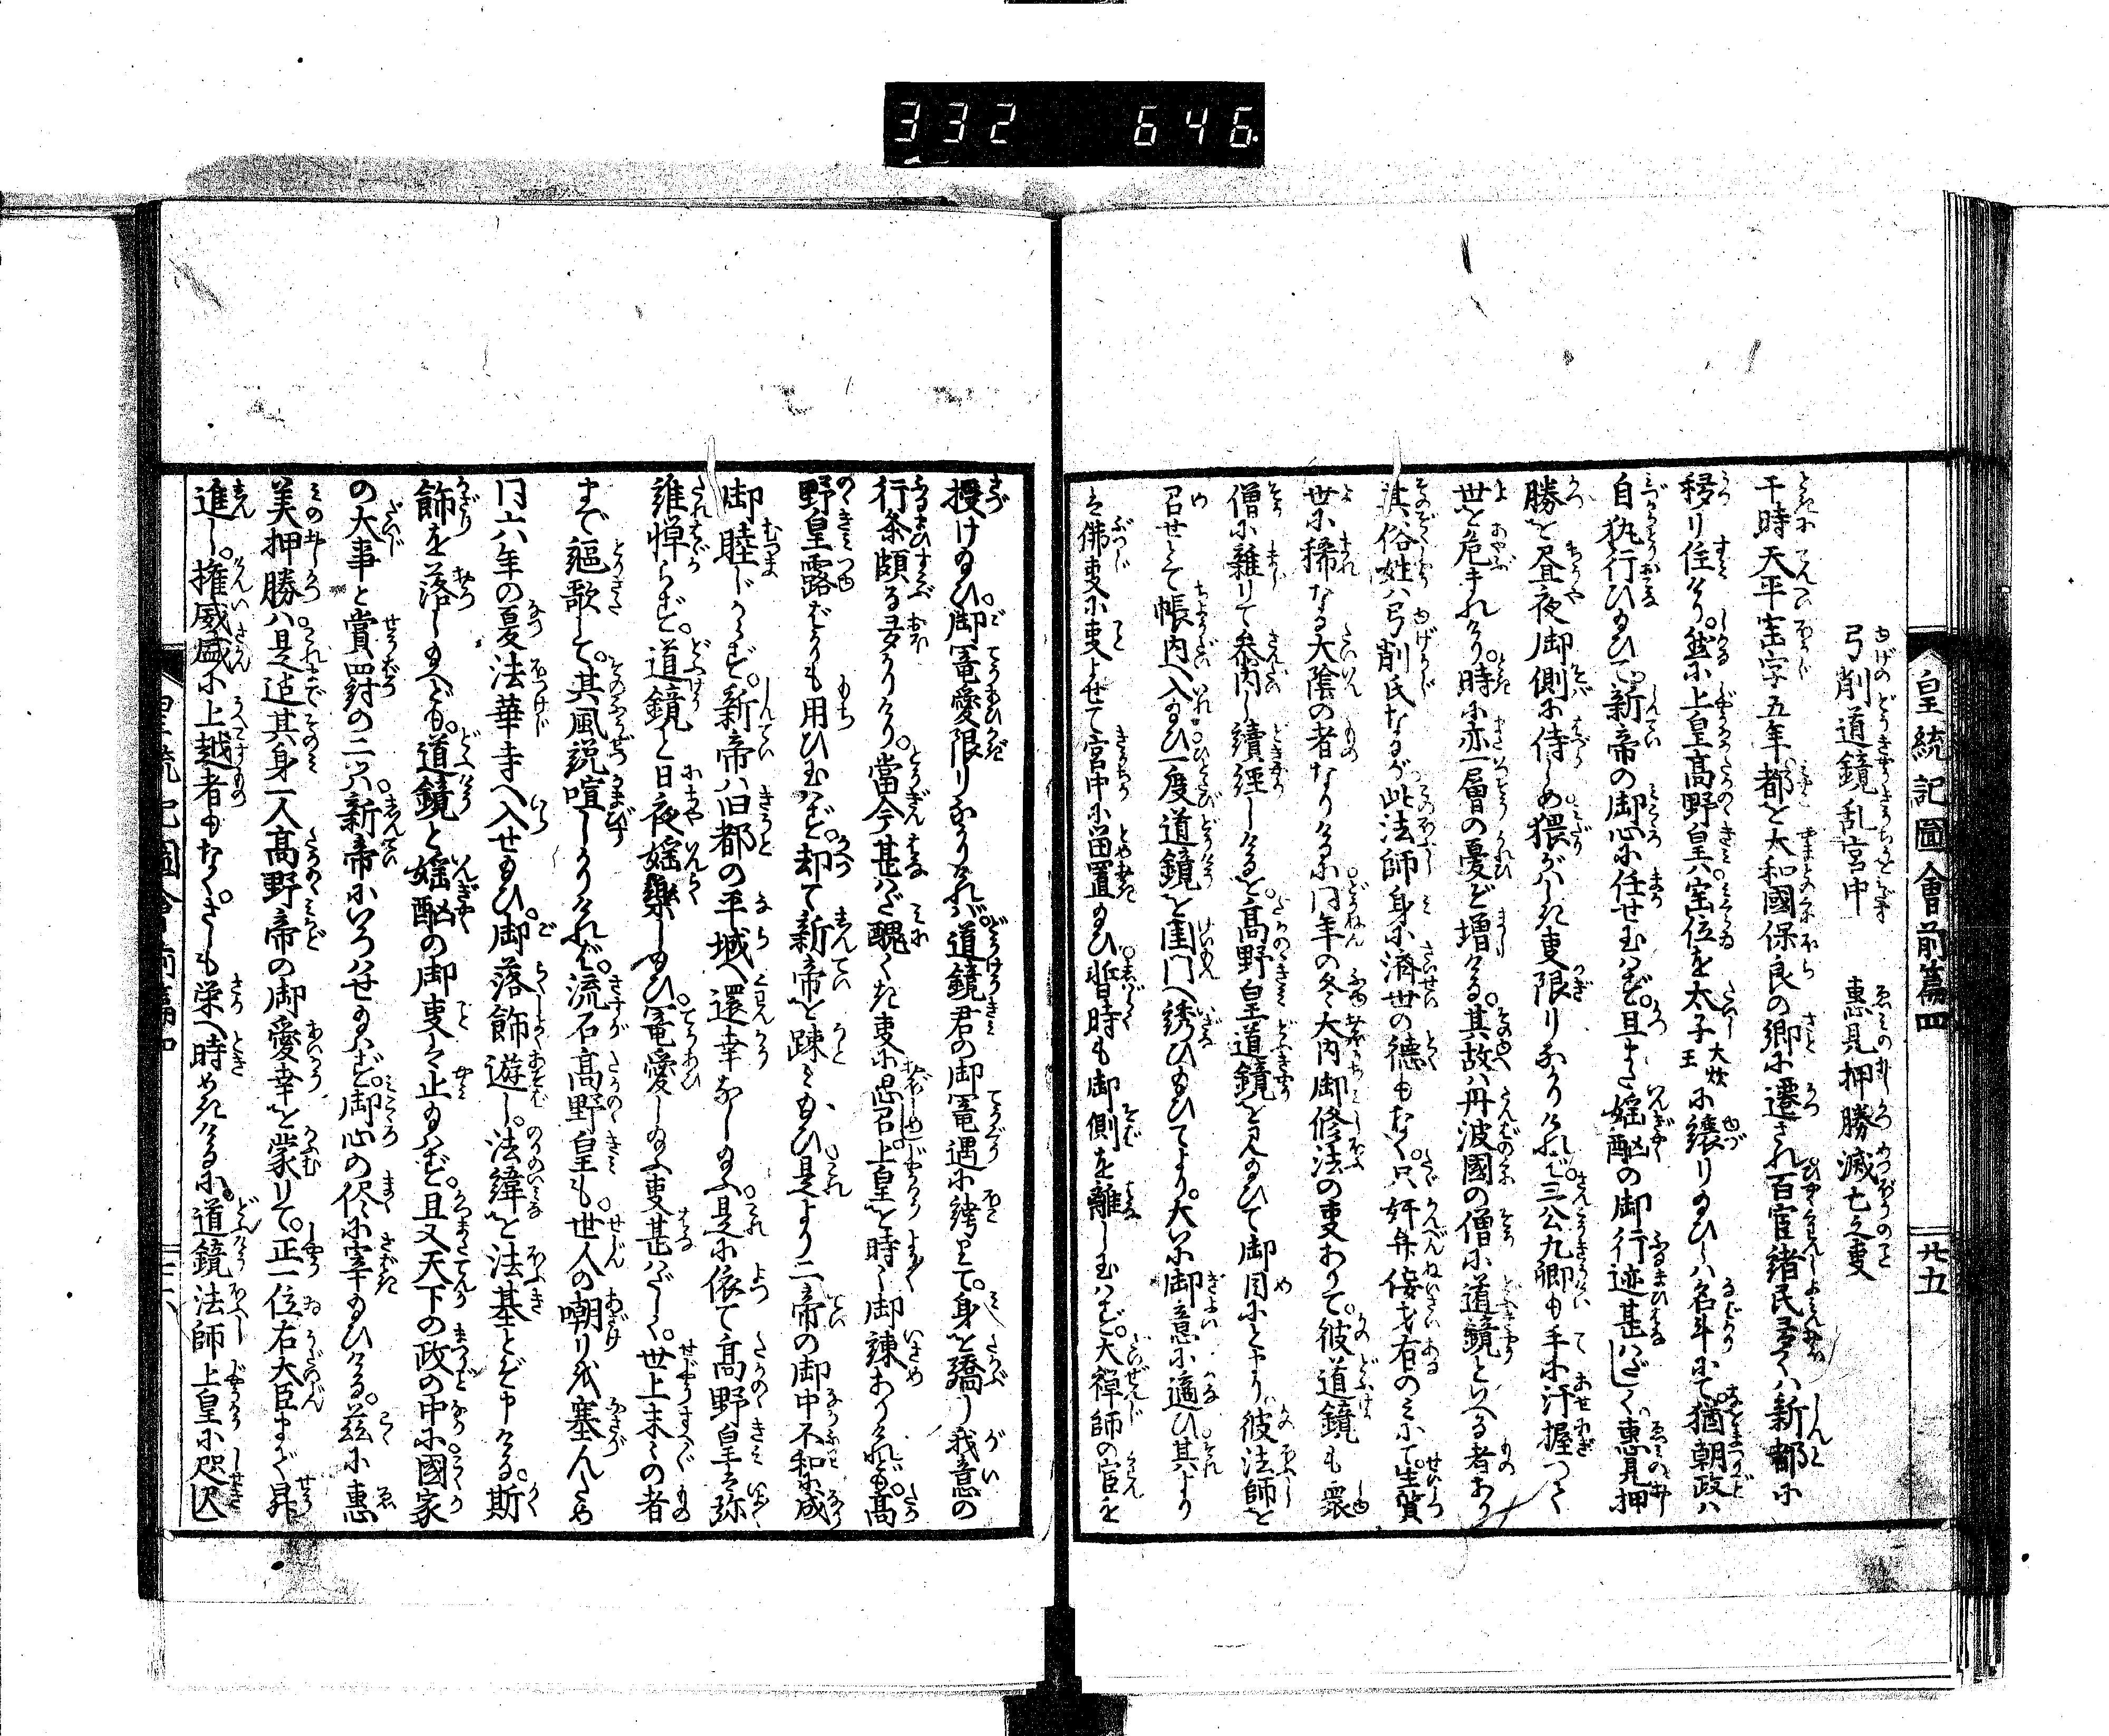 332 646
皇統記圖會前篇四
廿五
弓削道鏡乱宮中 惠美押勝滅亡之事
于時天平宝字五年都を大和國保良の郷に遷され百官諸民多くハ新都に
移り住けり。然に上皇高野皇ハ宝位を太子大炊王に譲り給ひしハ名斗にて。猶朝政ハ
自執行ひ給ひて。新帝の御心に任せ玉ハず。且また婬酗の御行迹甚はだしく惠美押
勝を昼夜御側に侍しめ猥がハしき事限りなかりけれバ。三公九卿も手に汗握つて
世を危まれけり。時に亦一層の憂ぞ増ける。其故ハ丹波國の僧に道鏡といへる者あり
其俗姓ハ弓削氏なるが此法師身に済世の徳もなく。只奸弁侫才有のミにて。生質
世に稀なる大陰の者なりけるに同年の冬大内御修法の事ありて。彼道鏡も衆
僧に雜りて参内し續經しけるを。高野皇道鏡を見給ひて御目にとまり。彼法師を
召せとて帳内へ入給ひ一度道鏡を閨門へ誘ひ給ひてより。大に御意に適ひ其より
は佛事に事よせて宮中に留置給ひ。暫時も御側を離し玉ハず。大禅師の官を
授け給ひ。御寵愛限りなかりけれバ。道鏡君の御寵遇に誇りて。身を驕り我意の
行条頗る多かりけり。當今甚ハだ醜くき事に思召。上皇を時々御諌ありけれども。高
野皇露ばかりも用ひ玉ハず。却て新帝を疎ミ給ひ是より二帝の御中不和に成
御睦じからず。新帝ハ旧都の平城へ還幸なし給ふ。是に依て高野皇は弥
誰憚らず。道鏡と日夜婬樂し給ひ。寵愛し給ふ事甚ハだし。世上末々の者
まで謳歌して。其風説喧しかりけれバ。流石高野皇も。世人の嘲り或塞んとや
同六年の夏法華寺へ入せ給ひ。御落飾遊し。法緯を法基とぞ申ける。斯
飾を落し給へども。道鏡と婬酗の御事は止給ハず。且又天下の政の中に國家
の大事と賞罰の二ハ。新帝にいろハせ給ハず。御心の侭に宰給ひける。茲に惠
美押勝ハ是迄其身一人高野帝の御愛幸を蒙りて。正一位右大臣まで昇
進し。權威盛に上越者もなく。さしも栄へ時めきけるに。道鏡法師上皇に咫尺